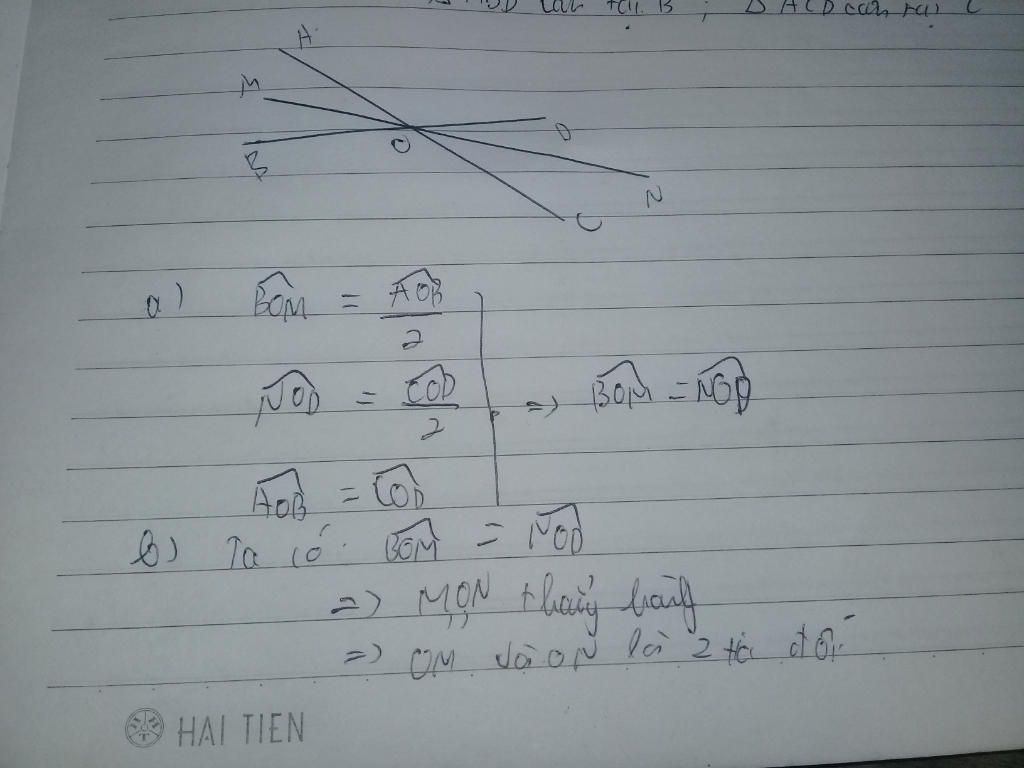 cân tại B ; Δ ACD cân tại C
A
M
O
D
B
N
C
a) BOM = AOB / 2
NOD = COD / 2 => BOM = NOD
AOB = COD
b) Ta có: BOM = NOD
=> M, O, N thẳng hàng
=> OM và ON là 2 tia đối
HAI TIEN